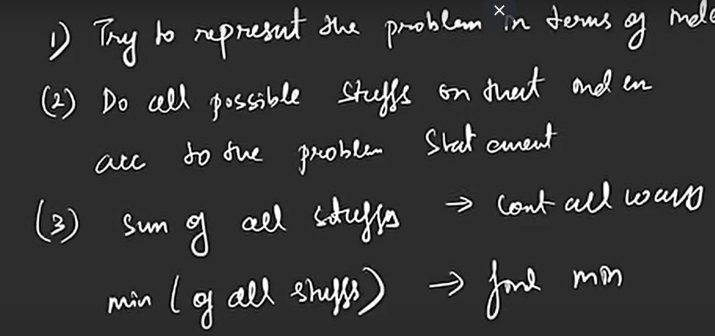 1) Try to represent the problem in terms of
(2) Do all possible stuffs on that
acc to the problem Statement
(3) Sum of all stuffs → Count all ways
min (of all stuffs) → find min